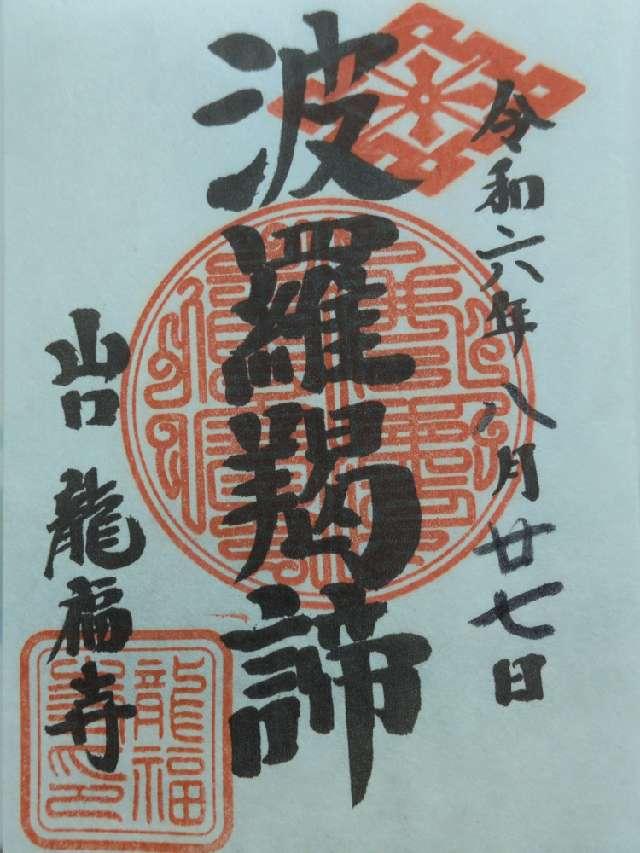 令和六年八月廿七日
波羅羯諦
山口 龍福寺
龍福寺印